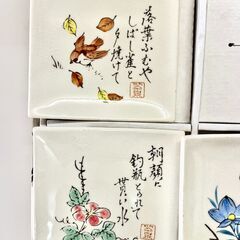 落葉ふむや
しばし雀と
夕焼けて
朝顔に
釣瓶とられて
もらい水